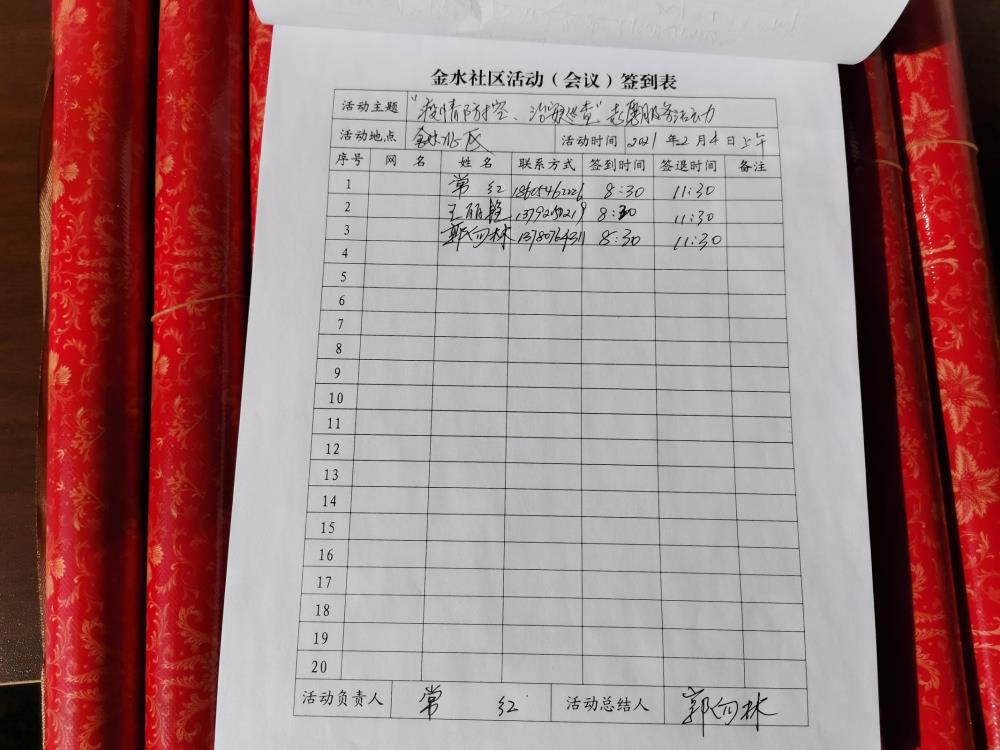 金水社区活动（会议）签到表
活动主题 "疫情防控、治安巡查"志愿服务活动
活动地点 金水社区 活动时间 2021年2月4日上午
序号 网 名 姓 名 联系方式 签到时间 签退时间 备注
1 常 红 18605462226 8:30 11:30
2 8:30 11:30
3 郭向林 8:30 11:30
4
5
6
7
8
9
10
11
12
13
14
15
16
17
18
19
20
活动负责人 常 红 活动总结人 郭向林